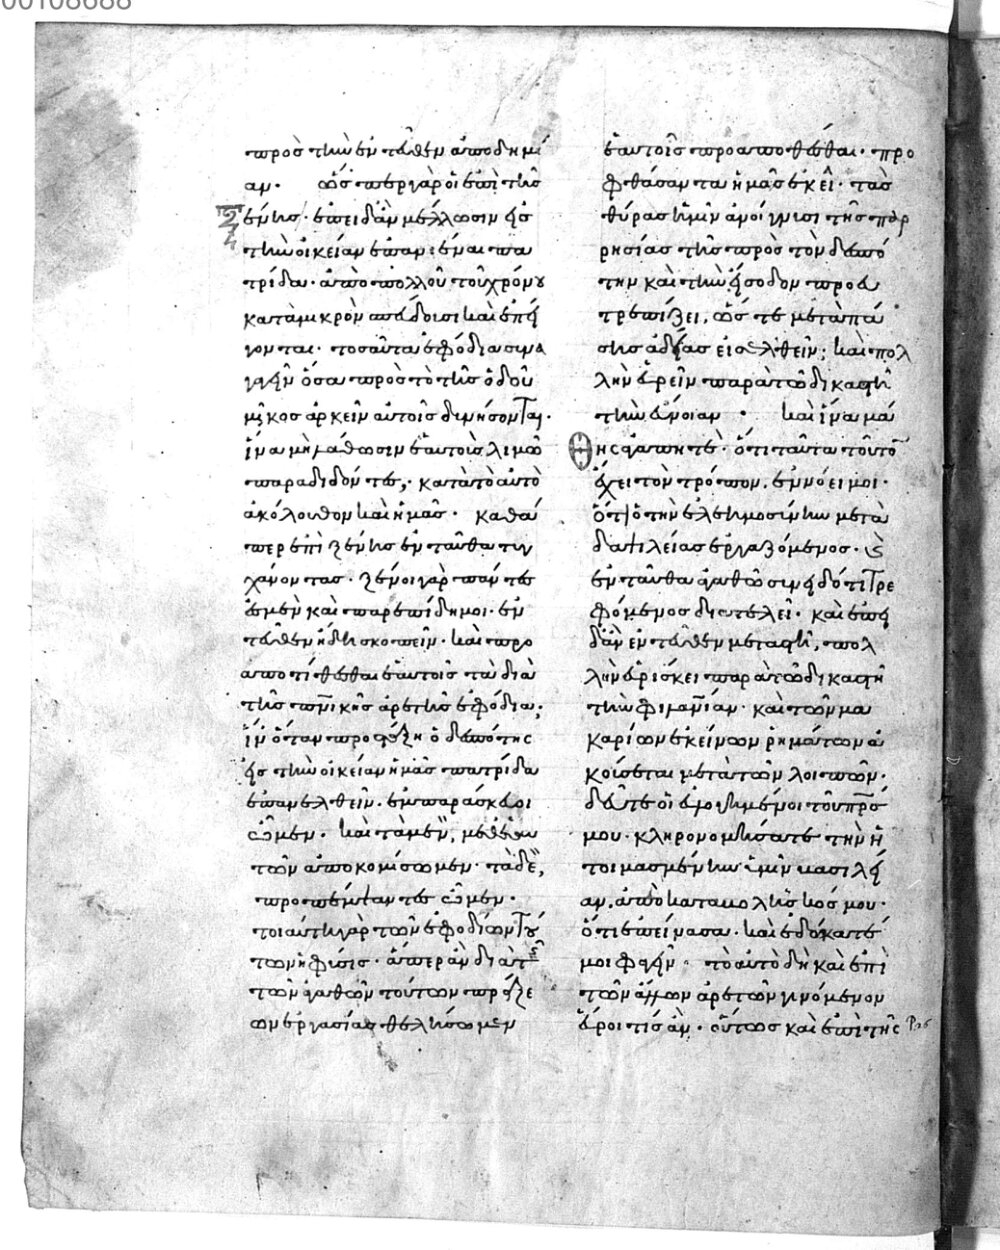 00108688
πρὸς τὴν ἐντεῦθεν ἀποδημί
αν. ὥσπερ γὰρ οἱ ἐπὶ τῆς
ξένης. ἐπειδὰν μέλλωσιν εἰς
τὴν οἰκείαν ἐπανιέναι πα
τρίδα. ἀπὸ πολλοῦ τοῦ χρόνου
κατὰ μικρὸν
γονται. τοσαῦτα ἐφόδια συνα
γαγεῖν ὅσα πρὸς τὸ τῆς ὁδοῦ
μῆκος ἀρκεῖν αὐτοῖς δυνήσονται.
ἵνα μὴ μάθωσιν ἑαυτοὺς λιμῶ
παραδιδόντες, κατὰ τὸ αὐτὸ
ἀκόλουθον καὶ ἡμᾶς. καθά
περ ἐπὶ ξένης ἐνταῦθα τυγ
χάνοντας. ξένοι γὰρ πάντες
ἐσμὲν καὶ παρεπίδημοι. ἐν
τεῦθεν ἤδη σκοπεῖν. καὶ προ
αποτίθεσθαι ἑαυτοῖς τὰ διὰ
τῆς πνικῆς ἀρετῆς ἐφόδια.
ἵν ὅταν προστάξη ὁ δεσπότης
εἰς τὴν οἰκείαν ἡμᾶς πατρίδα
ἐπανελθεῖν. ἐν παρασκευῆ
ὦμεν. καὶ τὰ μὲν, μεθ ἑαυ
τῶν ἀποκομίσωμεν. τὰ δὲ,
προπέμψαντες ὦμεν.
τοιαύτη γὰρ τῶν ἐφοδίων τού
των ἡ φύσις. ἅπερ ἂν διὰ τῆς
τῶν ἀγαθῶν τούτων πράξε
ων ἐργασίας θελήσωμεν
ἑαυτοῖς προαποθέσθαι. προ
φθάσαντα ἡμᾶς ἐκεῖ. τὰς
θύρας ἡμῖν ἀνοίγνυσι τῆς παρ
ρησίας τῆς πρὸς τὸν δεσπό
την καὶ τὴν εἴσοδον προευ
τρεπίζει. ὥστε μετὰ πά
σης ἀδείας εἰσελθεῖν. καὶ πολ
λὴν εὑρεῖν παρὰ τῶ δικαστῆ
τὴν εὔνοιαν. καὶ ἵνα μά
θης ἀγαπητὲ. ὅτι ταῦτα τοῦτον
ἔχει τὸν τρόπον. ἐννόει μοι.
ὅτι ὁ τὴν ἐλεημοσύνην μετὰ
δαψιλείας ἐργαζόμενος. καὶ
ἐνταῦθα ἀγαθῶ συνειδότι τρε
φόμενος διατελεῖ. καὶ ἐπει
δὰν ἐντεῦθεν μεταστῆ, πολ
λὴν εὑρίσκει παρὰ τῶ δικαστῆ
τὴν φιλανίαν. καὶ τῶν μα
καρίων ἐκείνων ῥημάτων ἀ
κούσεται μετὰ τῶν λοιπῶν.
δεῦτε οἱ εὐλογημένοι τοῦ πρς
μου. κληρονομήσατε τὴν ἡ
τοιμασμένην ὑμῖν βασιλεί
αν. ἀπὸ καταβολῆς κόσμου.
ὅτι ἐπείνασα. καὶ ἐδώκατέ
μοι φαγεῖν. τὸ αὐτὸ δὴ καὶ ἐπὶ
τῶν ἄλλων ἀρετῶν γινόμενον
εὕροι τίς ἂν. οὕτως καὶ ἐπὶ τῆς